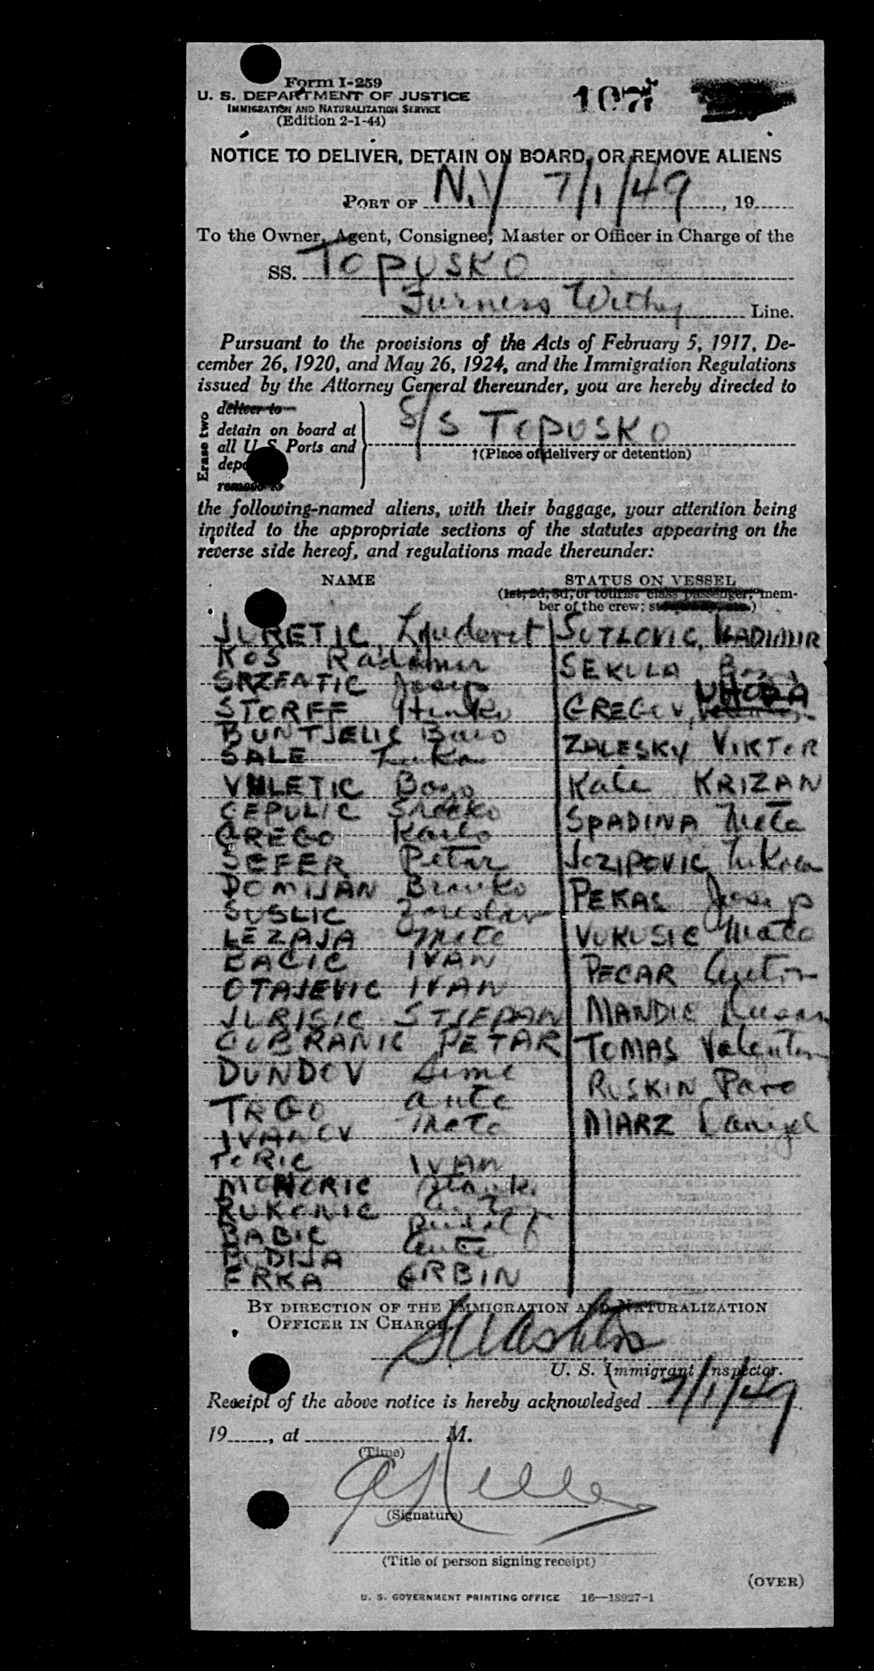 Form I-259
U. S. DEPARTMENT OF JUSTICE
IMMIGRATION AND NATURALIZATION SERVICE
(Edition 2-1-44)
107
NOTICE TO DELIVER, DETAIN ON BOARD, OR REMOVE ALIENS
PORT OF N.Y 7/1/49, 19
To the Owner, Agent, Consignee, Master or Officer in Charge of the
SS. TOPUSKO
Furness Withy Line.
Pursuant to the provisions of the Acts of February 5, 1917, De-
cember 26, 1920, and May 26, 1924, and the Immigration Regulations
issued by the Attorney General thereunder, you are hereby directed to
Erase two
deliver to
detain on board at
all U.S. Ports and
remove to
S/S TOPUSKO
†(Place of delivery or detention)
the following-named aliens, with their baggage, your attention being
invited to the appropriate sections of the statutes appearing on the
reverse side hereof, and regulations made thereunder:
NAME STATUS ON VESSEL
(1st, 2d, 3d, or tourist class passenger, mem-
ber of the crew;
JURETIC Ljuderit
KOS Radomir
SRZENTIC Josip
STORFF Hinko
BUNTJELIC Baro
SALE Luka
VULETIC Bozo
CEPULIC Srecko
GREGO Karlo
SEFER Petar
DOMIJAN Branko
SUSLIC
LEZAJA Mate
BACIC IVAN
OTAJEVIC IVAN
JURISIC STJEPAN
CUBRANIC PETAR
DUNDOV Sime
TRGO Ante
IVANOV Mate
TORIC IVAN
MOHORIC
RUKONIC
BABIC Rudolf
PUDIJA Ante
FRKA ERBIN
SUTLOVIC, VLADIMIR
SEKULA
GREGOV,
ZALESKY VIKTOR
Kate KRIZAN
SPADINA Mate
JOZIPOVIC Luka
PEKAS Josip
VUKUSIC Mato
PECAR Anton
MANDIC Dusan
TOMAS Valentin
RUSKIN Paro
MARZ Danijel
BY DIRECTION OF THE IMMIGRATION AND NATURALIZATION
OFFICER IN CHARGE.
U. S. Immigrant Inspector.
Receipt of the above notice is hereby acknowledged 7/1/49
19, at M.
(Time)
(Signature)
(Title of person signing receipt)
(OVER)
U. S. GOVERNMENT PRINTING OFFICE 16—18927-1